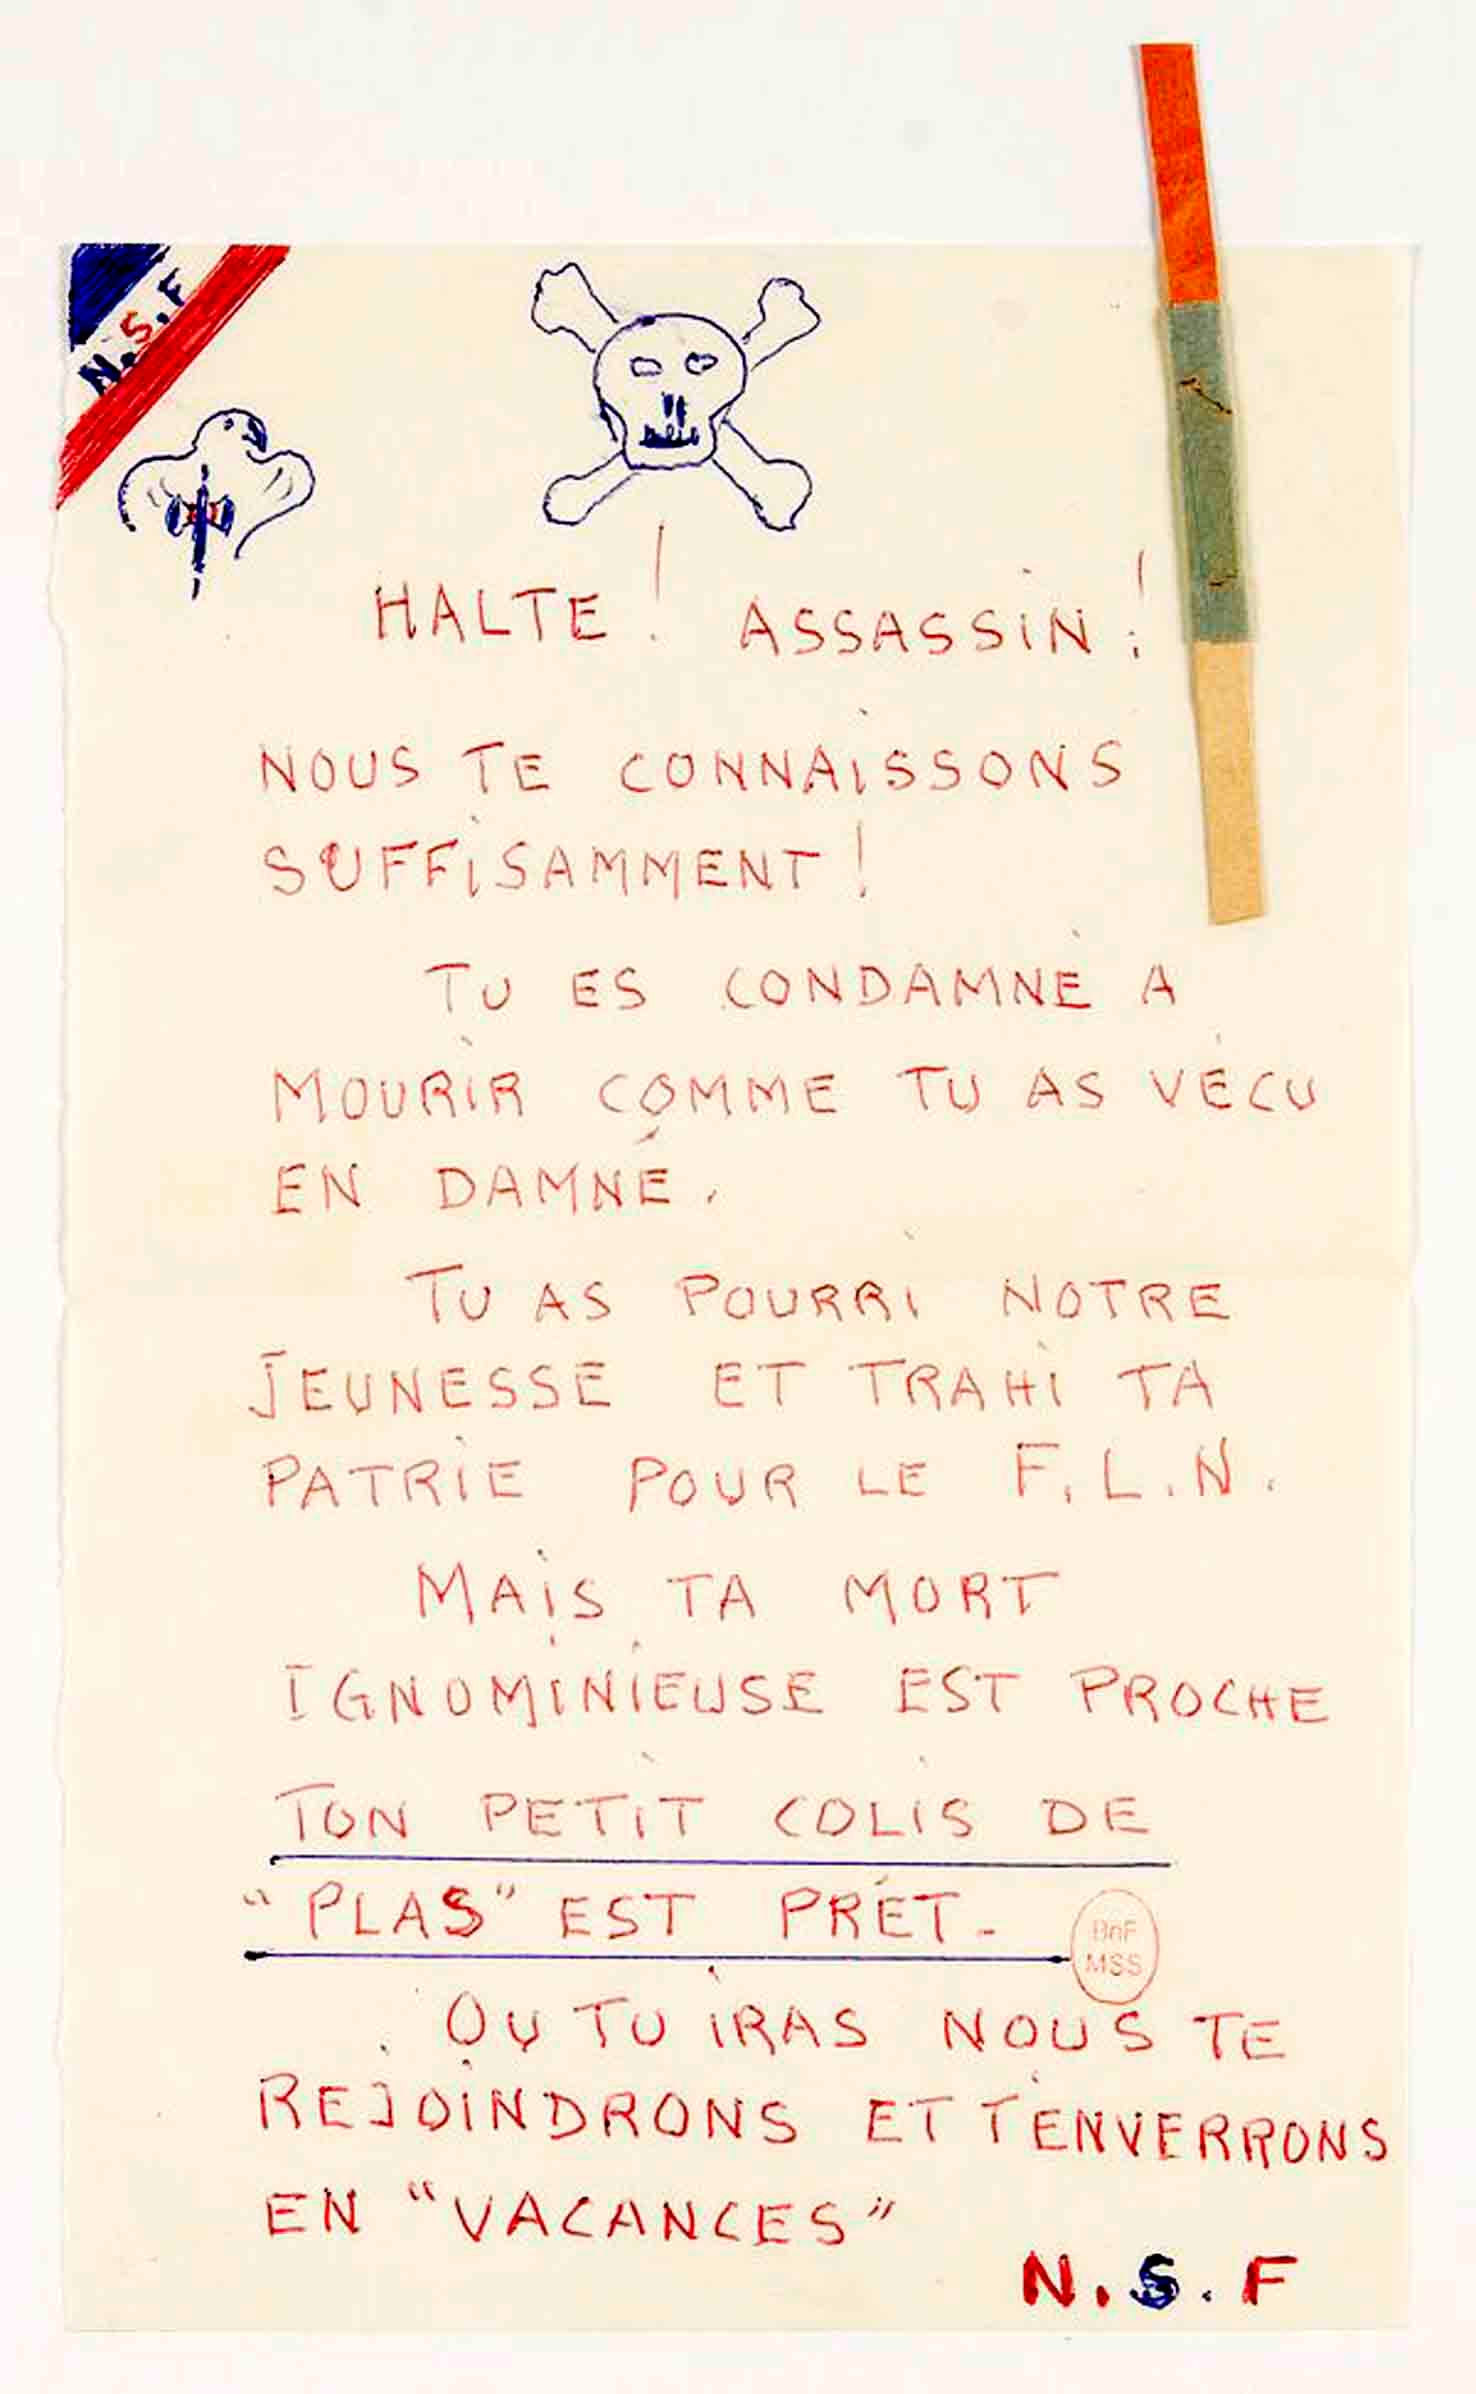 N.S.F
HALTE! ASSASSIN!
NOUS TE CONNAISSONS
SUFFISAMMENT!
TU ES CONDAMNÉ A
MOURIR COMME TU AS VÉCU
EN DAMNÉ.
TU AS POURRI NOTRE
JEUNESSE ET TRAHI TA
PATRIE POUR LE F.L.N.
MAIS TA MORT
IGNOMINIEUSE EST PROCHE
TON PETIT COLIS DE
"PLAS" EST PRÉT-
BnF
MSS
OU TU IRAS NOUS TE
REJOINDRONS ET T'ENVERRONS
EN "VACANCES"
N.S.F